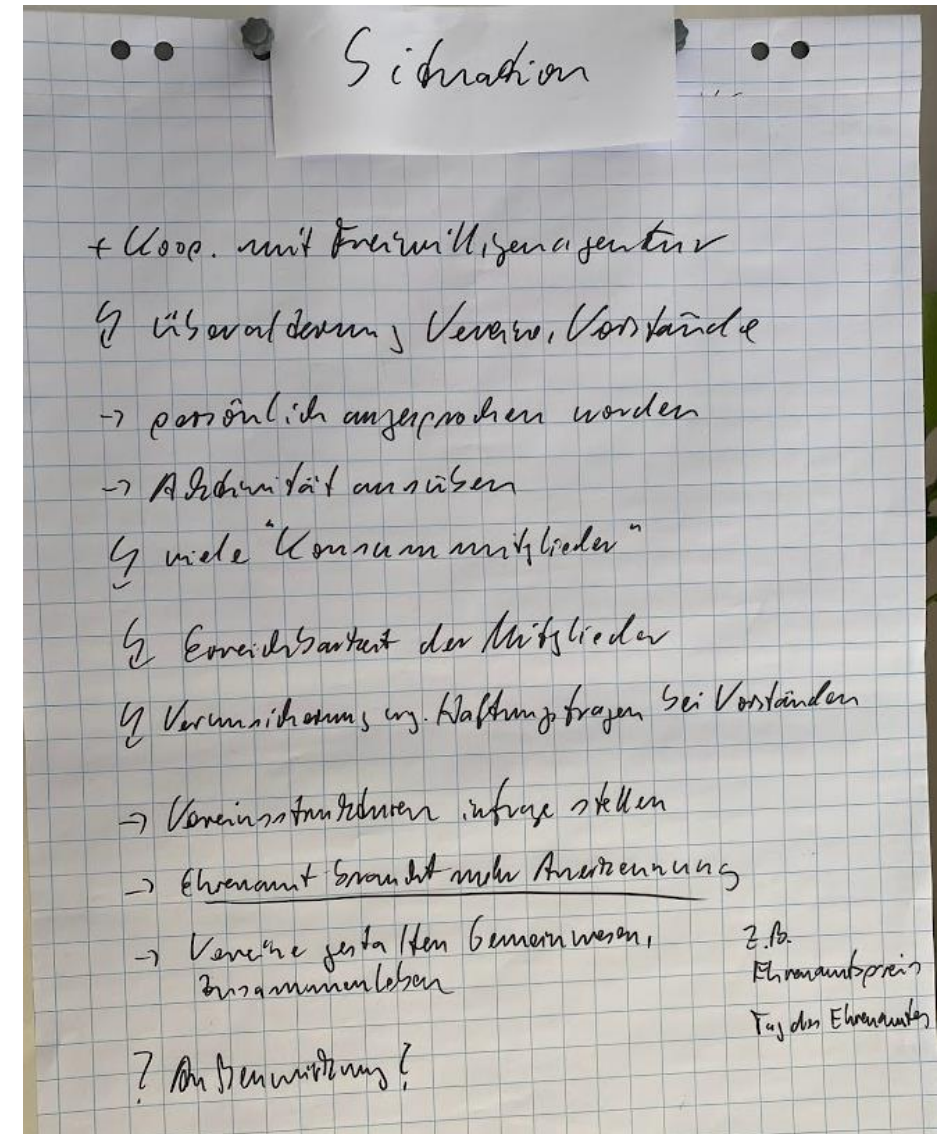 Situation
+ Koop. mit Freiwilligenagentur
↯ Überalterung Vereine, Vorstände
→ persönlich angesprochen werden
→ Attraktivität ausüben
↯ viele "Konsummitglieder"
↯ Erreichbarkeit der Mitglieder
↯ Verunsicherung wg. Haftungsfragen bei Vorständen
→ Vereinsstrukturen infrage stellen
→ Ehrenamt braucht mehr Anerkennung
z.B.
Ehrenamtspreis
Tag des Ehrenamtes
→ Vereine gestalten Gemeinwesen,
Zusammenleben
? Außenwirkung ?